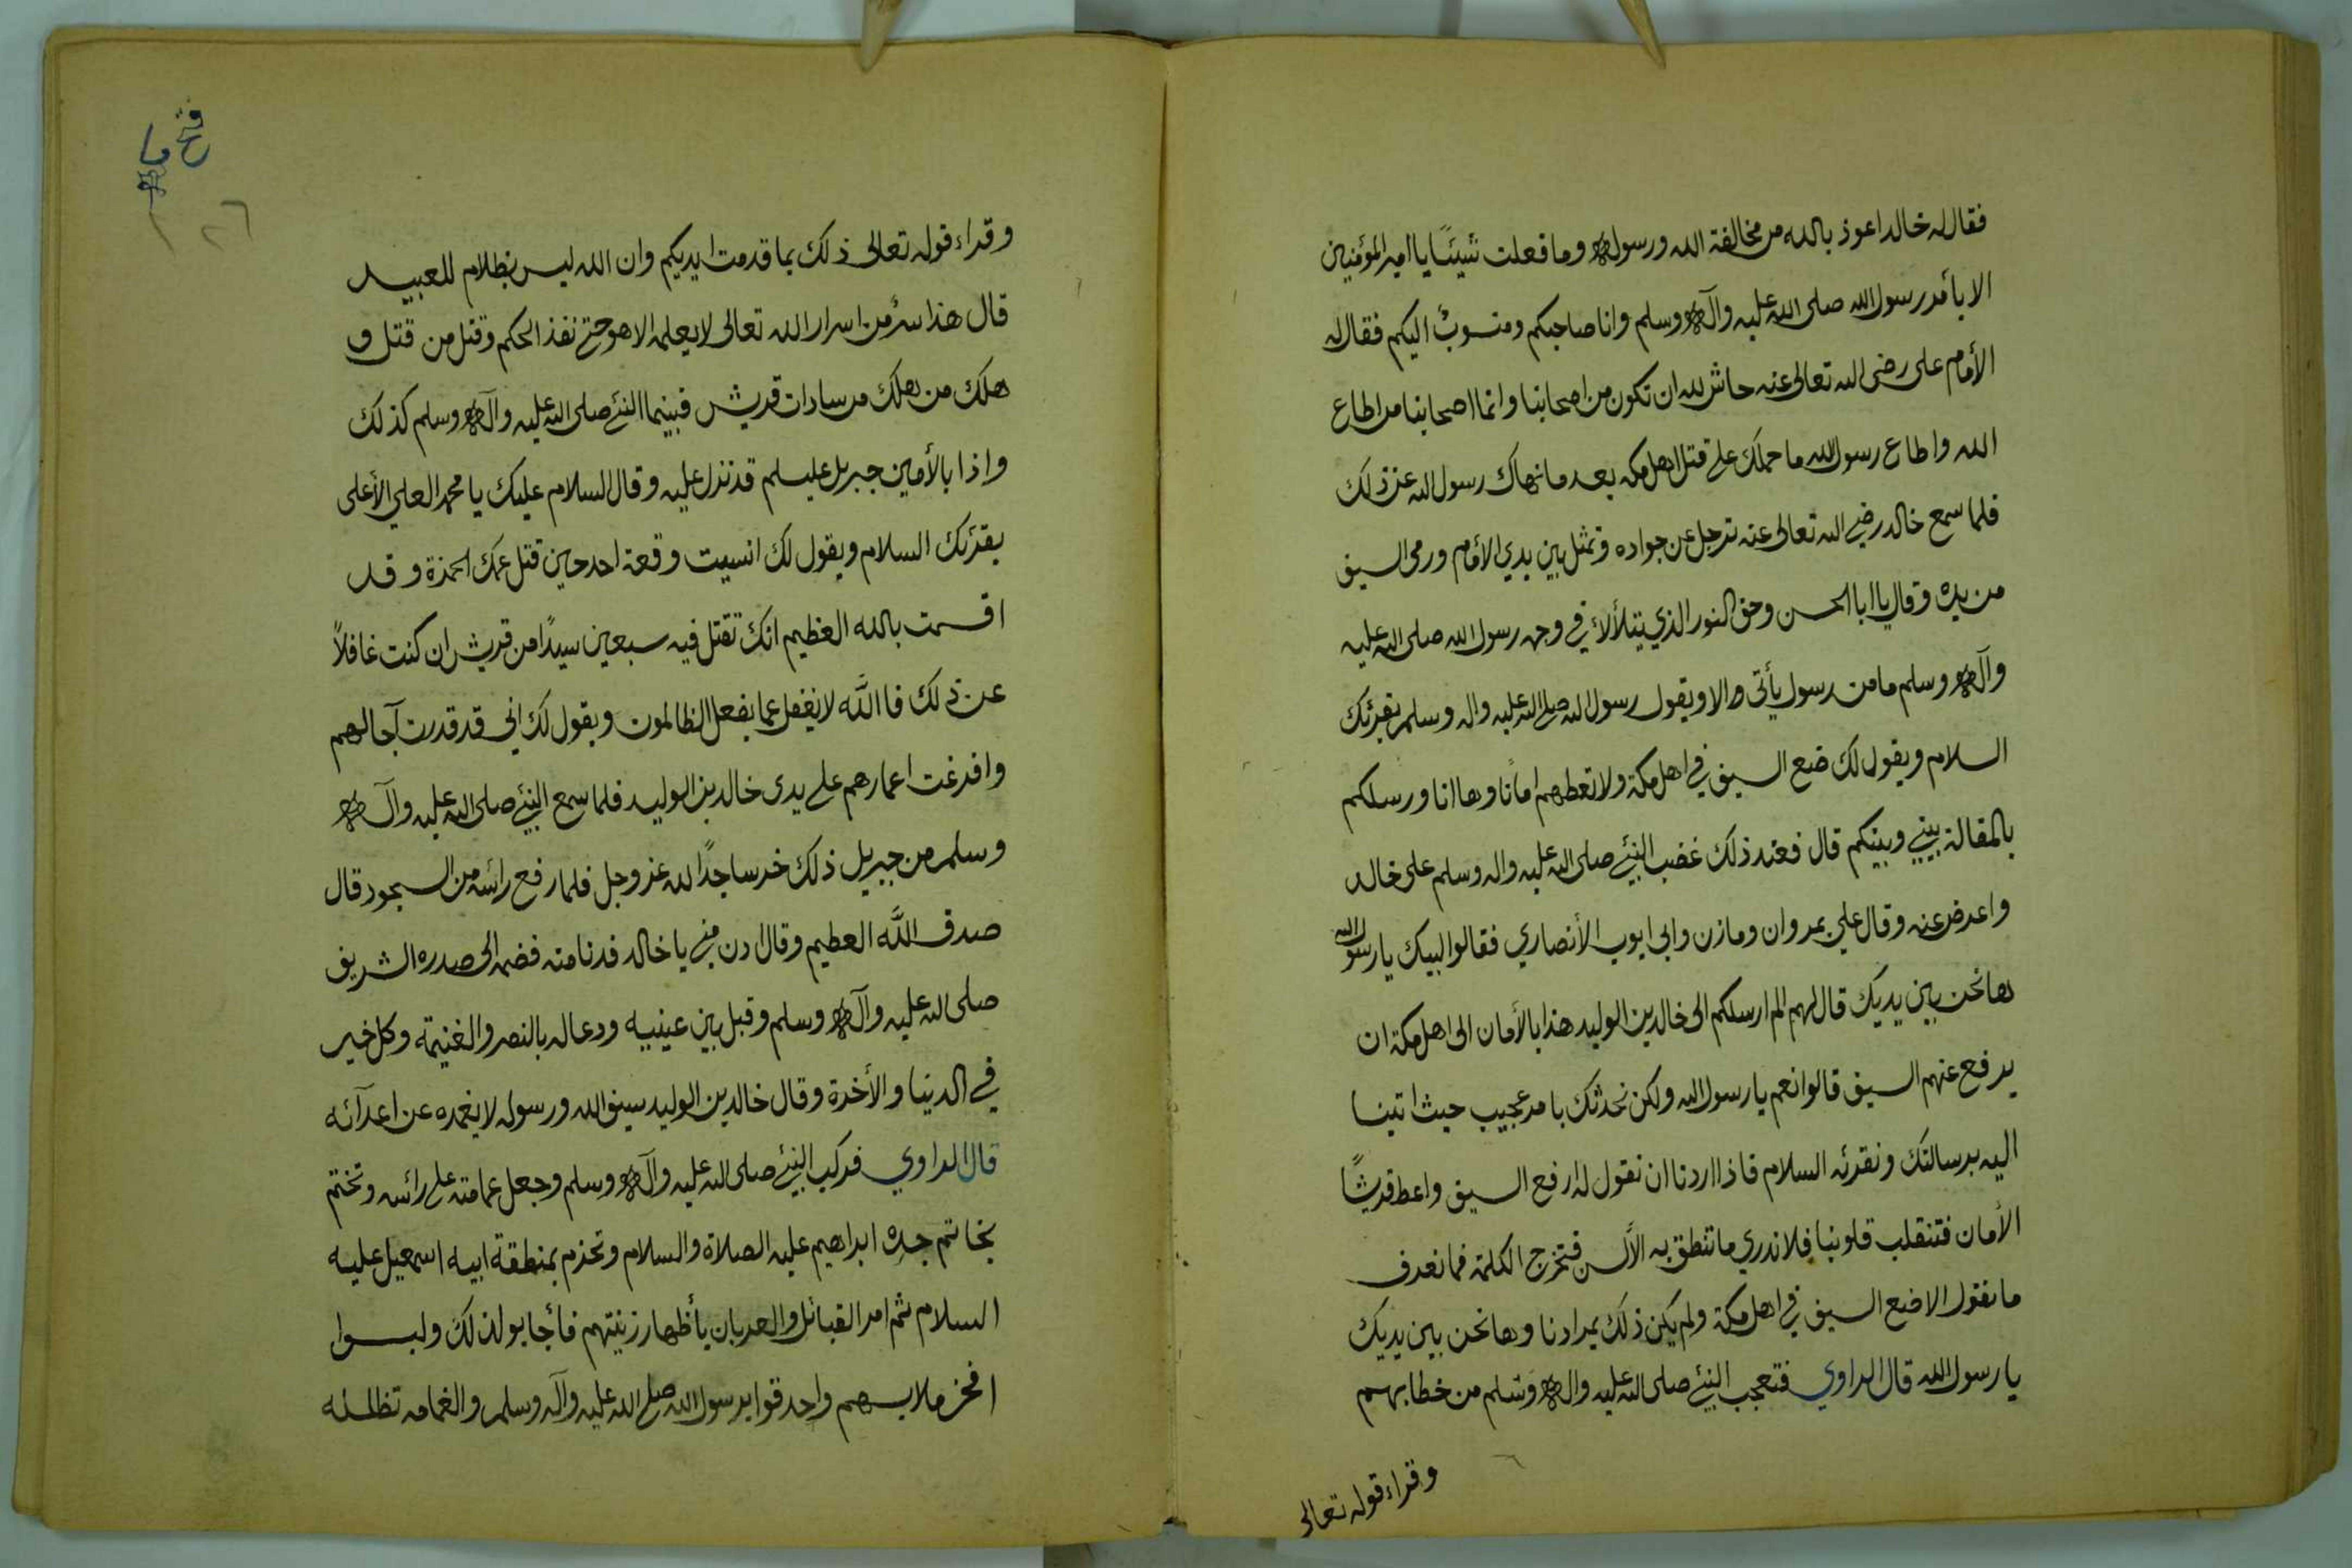 فقال له خالد اعوذ بالله من مخالفة الله ورسوله وما فعلت شيئًا يا امير المؤمنين
الا بأمر رسول الله صلى الله عليه وآله وسلم وانا صاحبكم ومنسوبٌ اليكم فقال له
الأمام على رضى الله تعالى عنه حاش لله ان تكون من اصحابنا وانما اصحابنا من اطاع
الله واطاع رسول الله ما حملك على قتل اهل مكه بعد ما نهاك رسول الله عن ذلك
فلما سمع خالد رضي الله تعالى عنه ترجل عن جواده وتمثل بين يدي الأمام ورمى السيف
من يده وقال يا ابا الحسن وحق النور الذي يتلألأ في وجه رسول الله صلى الله عليه
وآله وسلم ما من رسول يأتى الا ويقول رسول الله صلى الله عليه واله وسلم يقرئك
السلام ويقول لك ضع السيف في اهل مكة ولا تعطهم امانًا وها انا ورسلكم
بالمقالة بيني وبينكم قال فعند ذلك غضب النبيّ صلى الله عليه واله وسلم على خالد
واعرض عنه وقال علي بمروان ومازن وابى ايوب الأنصاري فقالوا لبيك يا رسول الله
ها نحن بين يديك قال لهم الم ارسلكم الى خالد بن الوليد هذا بالأمان الى اهل مكة ان
يرفع عنهم السيف قالوا نعم يا رسول الله ولكن نحدثك بامر عجيب حيث اتينا
اليه برسالتك ونقرئه السلام فاذا اردنا ان نقول له ارفع السيف واعط قريشًا
الأمان فتنقلب قلوبنا فلا ندري ما تنطق به الألسن فتخرج الكلمة فما نعرف
ما نقول الا ضع السيف في اهل مكة ولم يكن ذلك بمرادنا وها نحن بين يديك
يا رسول الله قال الراوي فتعجب النبيّ صلى الله عليه واله وسلم من خطابهم
وقراء قوله تعالى
فتح ما
٢٦
وقراء قوله تعالى ذلك بما قدمت ايديكم وان الله ليس بظلام للعبيد
قال هذا سرٌ من اسرار الله تعالى لا يعلمه الا هو حتى نفذ الحكم وقتل من قتل و
هلك من هلك من سادات قريش فبينما النبيّ صلى الله عليه وآله وسلم كذلك
واذا بالأمين جبريل عليه سلم قد نزل عليه وقال السلام عليك يا محمد العلي الأعلى
يقرئك السلام ويقول لك انسيت وقعة احد حين قتل عمك احمزة وقد
اقسمت بالله العظيم انك تقتل فيه سبعين سيدًا من قريش ان كنت غافلاً
عن ذلك فاالله لا يغفل عما يفعل الظالمون ويقول لك اني قد قدرت آجالهم
وافرغت اعمارهم على يدى خالد بن الوليد فلما سمع النبيّ صلى الله عليه وآله
وسلم من جبريل ذلك خر ساجدًا لله عز وجل فلما رفع رائسه من السجود قال
صدق الله العظيم وقال ادن مني يا خالد فدنا منه فضمه الى صدره الشريف
صلى الله عليه وآله وسلم وقبل بين عينيه ودعا له بالنصر والغنيمة وكل خير
في الدنيا والأخرة وقال خالد بن الوليد سيف الله ورسوله لا يغمده عن اعدآئه
قال الراوي فركب النبيّ صلى الله عليه وآله وسلم وجعل عمامته على رائسه وتختم
بخاتم جده ابراهيم عليه الصلاة والسلام وتحزم بمنطقة ابيه اسمعيل عليه
السلام ثم امر القبائل والعربان بأظهار زينتهم فأجابو لذلك ولبسوا
افخر ملابسهم واحدقوا برسول الله صلى الله عليه وآله وسلم والغمامه تظلله